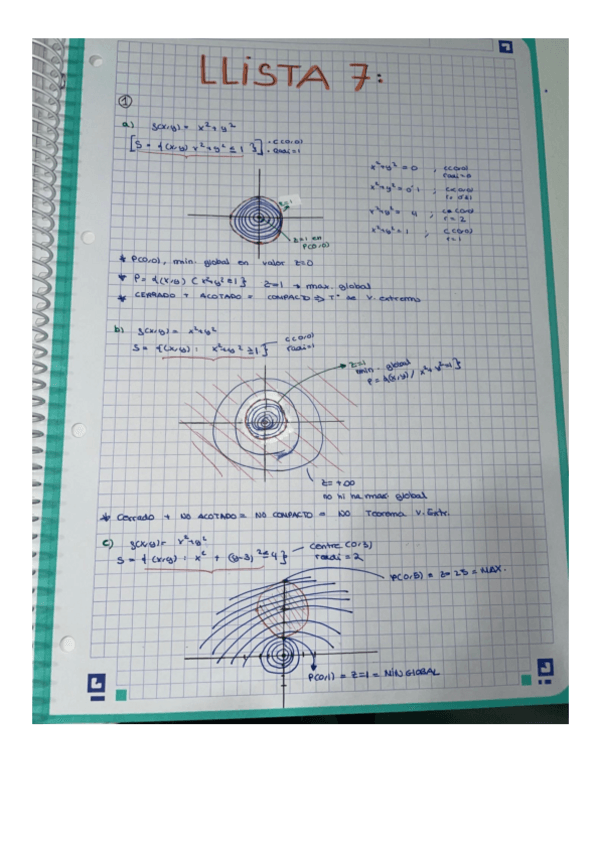 LLISTA 7:
1
a) f(x,y) = x²+y²
[S = {(x,y) x²+y² ≤ 1 }] · C(0,0)
· radi=1
x²+y² = 0 ; C(0,0)
radi=0
x²+y² = 0'1 ; C(0,0)
x²+y² = 4 ; C(0,0)
r = 2
x²+y² = 1 ; C(0,0)
r=1
z=1
z=1 en
P(0,0)
* P(0,0), min. global en valor z=0
* P= {(x,y) x²+y²=1} z=1 → max. global
* CERRADO + ACOTADO = COMPACTO ⇒ Tª de V. extremo
b) f(x,y) = x²+y²
S = {(x,y) : x²+y² ≥ 1 } C(0,0)
radi=1
z=1
min. global
P = {(x,y) / x²+y²=1}
z= +∞
no hi ha max global
* Cerrado + NO ACOTADO = NO COMPACTO = NO Teorema V. Extr.
c) f(x,y) = x²+y²
S = {(x,y) : x² + (y-3)² ≤ 4 } centre (0,3)
radi = 2
P(0,5) = z= 25 = MAX.
P(0,1) = z=1 = MIN GLOBAL